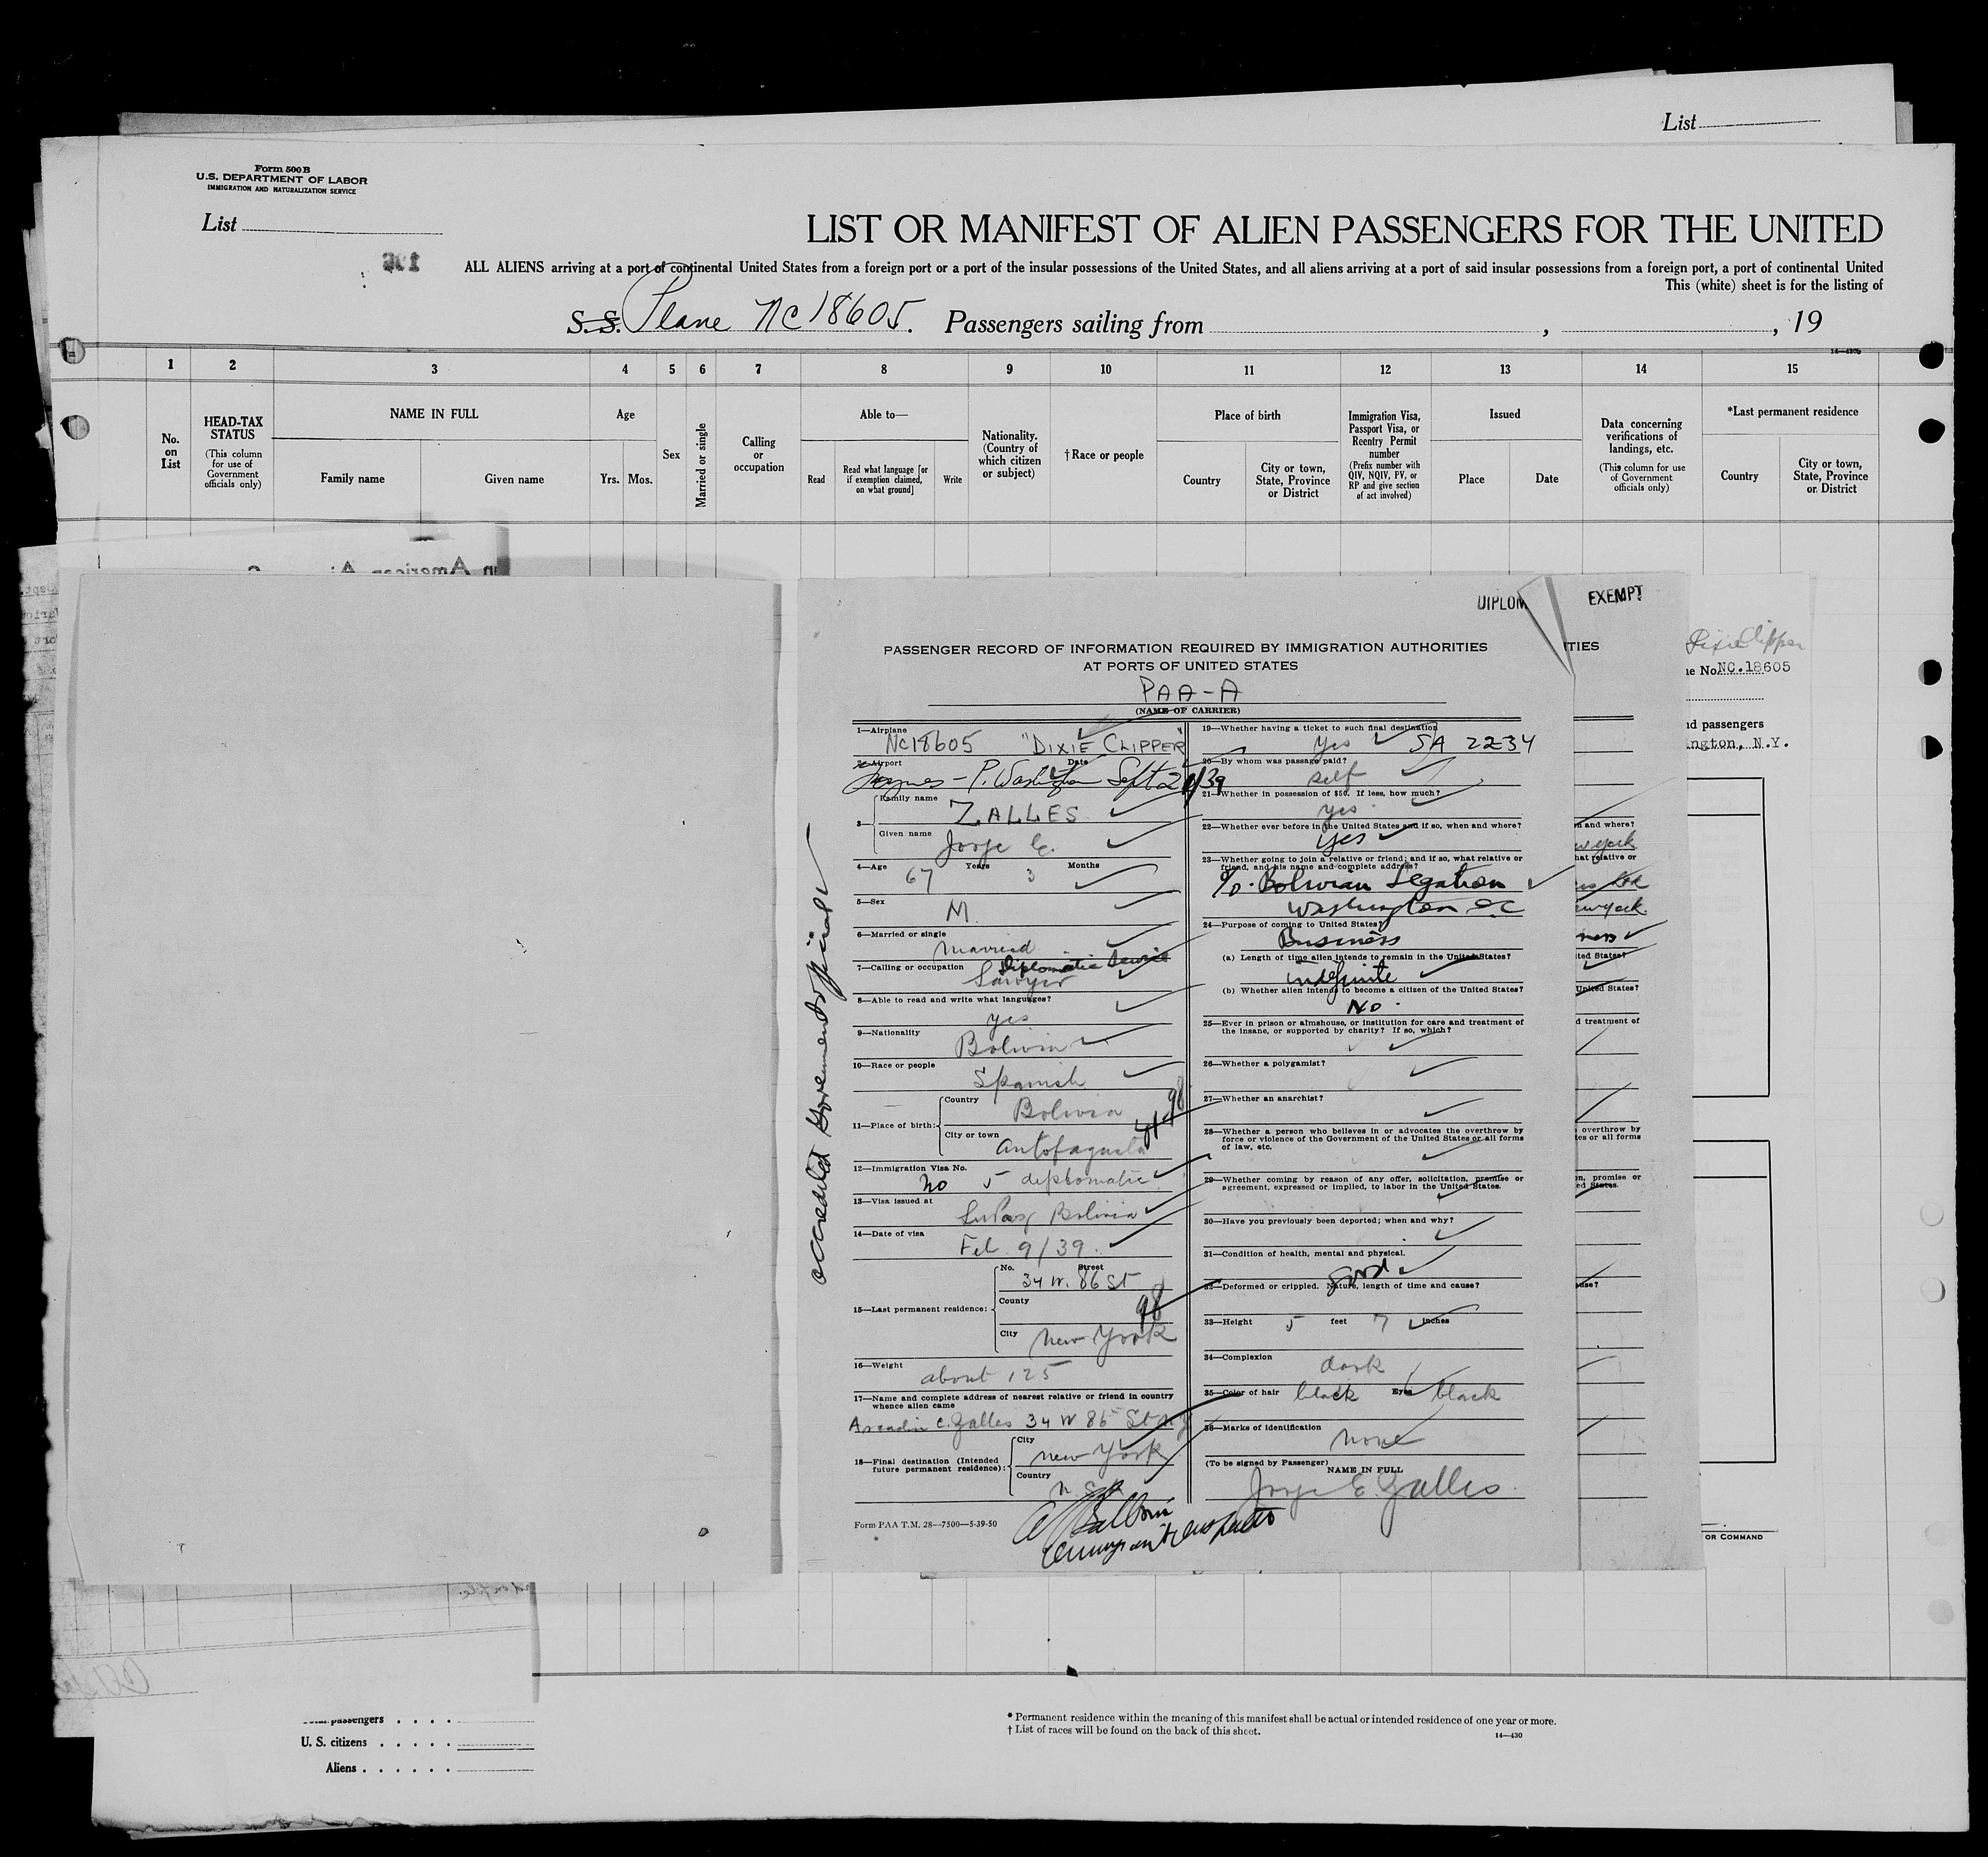 List
Form 500 B
U.S. DEPARTMENT OF LABOR
IMMIGRATION AND NATURALIZATION SERVICE
List
LIST OR MANIFEST OF ALIEN PASSENGERS FOR THE UNITED
ALL ALIENS arriving at a port of continental United States from a foreign port or a port of the insular possessions of the United States, and all aliens arriving at a port of said insular possessions from a foreign port, a port of continental United
This (white) sheet is for the listing of
S.S. Plane NC 18605. Passengers sailing from , , 19
14—430b
1 2 3 4 5 6 7 8 9 10 11 12 13 14 15
No. on List
HEAD-TAX STATUS
(This column for use of Government officials only)
NAME IN FULL
Family name
Given name
Age
Yrs. Mos.
Sex
Married or single
Calling or occupation
Able to—
Read
Read what language [or if exemption claimed, on what ground]
Write
Nationality. (Country of which citizen or subject)
†Race or people
Place of birth
Country
City or town, State, Province or District
Immigration Visa, Passport Visa, or Reentry Permit number
(Prefix number with QIV, NQIV, PV, or RP and give section of act involved)
Issued
Place
Date
Data concerning verifications of landings, etc.
(This column for use of Government officials only)
*Last permanent residence
Country
City or town, State, Province or District
DIPLOM
EXEMPT
PASSENGER RECORD OF INFORMATION REQUIRED BY IMMIGRATION AUTHORITIES
AT PORTS OF UNITED STATES
PAA-A
(NAME OF CARRIER)
1—Airplane
NC18605 "DIXIE CLIPPER"
2—Airport Date
P. Washington Sept 2
3—
Family name
ZALLES
Given name
Jorge E.
4—Age Years Months
67 3
5—Sex
M.
6—Married or single
Married
7—Calling or occupation
Diplomatic Service
Lawyer
8—Able to read and write what languages?
yes
9—Nationality
Bolivia
10—Race or people
Spanish
11—Place of birth:
Country
Bolivia 98
City or town
Antofagasta
12—Immigration Visa No.
No 5 diplomatic
13—Visa issued at
La Paz Bolivia
14—Date of visa
Feb 9/39.
15—Last permanent residence:
No. Street
34 W. 86 St
County
98
City
New York
16—Weight
about 125
17—Name and complete address of nearest relative or friend in country
whence alien came
C. Zalles 34 W 86 St N Y
18—Final destination (Intended
future permanent residence):
City
New York
Country
Form PAA T.M. 28--7500—5-39-50
19—Whether having a ticket to such final destination
Yes SA 2234
20—By whom was passage paid?
self
21—Whether in possession of $50. If less, how much?
yes
22—Whether ever before in the United States and if so, when and where?
Yes
23—Whether going to join a relative or friend; and if so, what relative or
friend, and his name and complete address?
c/o. Bolivian Legation
Washington DC
24—Purpose of coming to United States?
Business
(a) Length of time alien intends to remain in the United States?
indefinite
(b) Whether alien intends to become a citizen of the United States?
No
25—Ever in prison or almshouse, or institution for care and treatment of
the insane, or supported by charity? If so, which?
26—Whether a polygamist?
27—Whether an anarchist?
28—Whether a person who believes in or advocates the overthrow by
force or violence of the Government of the United States or all forms
of law, etc.
29—Whether coming by reason of any offer, solicitation, promise or
agreement, expressed or implied, to labor in the United States.
30—Have you previously been deported; when and why?
31—Condition of health, mental and physical.
Good
32—Deformed or crippled. Nature, length of time and cause?
33—Height 5 feet 7 inches
34—Complexion
dark
35—Color of hair black Eyes black
36—Marks of identification
none
(To be signed by Passenger)
NAME IN FULL
Jorge E. Zalles
accredited Government official
TIES
Dixie Clipper
ne No. NC.18605
nd passengers
ington, N.Y.
n and where?
w york
hat relative or
ewyork
ness
ited States?
United States?
d treatment of
overthrow by
tes or all forms
on, promise or
ed States.
use?
OR COMMAND
passengers . . . .
U. S. citizens . . . . .
Aliens . . . . . .
* Permanent residence within the meaning of this manifest shall be actual or intended residence of one year or more.
† List of races will be found on the back of this sheet.
14—430